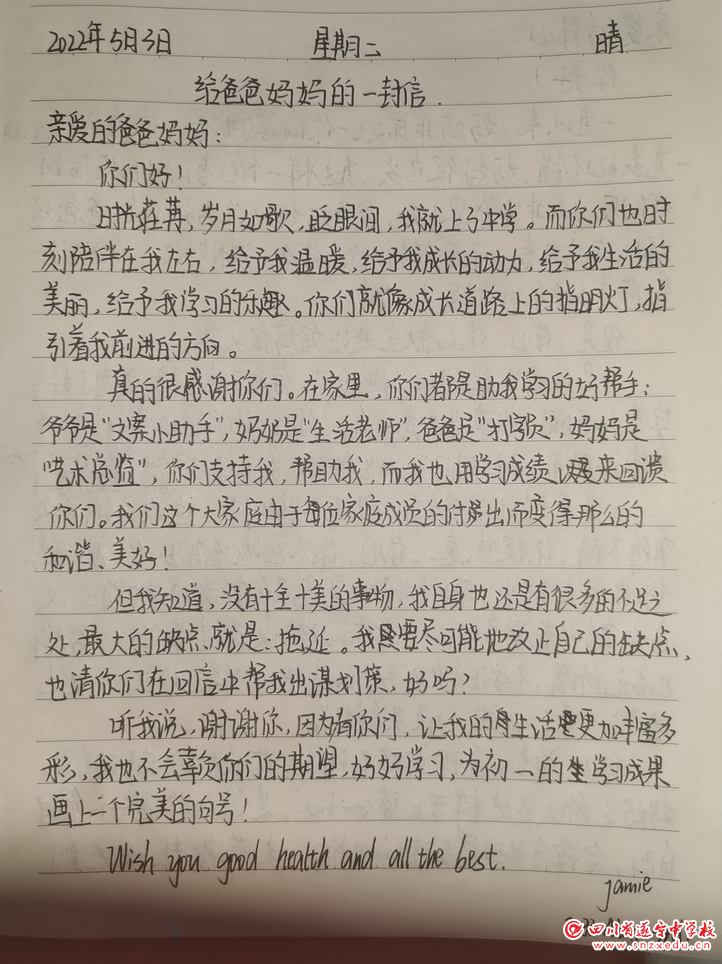 2022年5月3日 星期二 晴
给爸爸妈妈的一封信.
亲爱的爸爸妈妈:
你们好!
时光荏苒,岁月如歌,眨眼间,我就上了中学。而你们也时
刻陪伴在我左右,给予我温暖,给予我成长的动力,给予我生活的
美丽,给予我学习的乐趣。你们就像成长道路上的指明灯,指
引着我前进的方向。
真的很感谢你们。在家里,你们都是助我学习的好帮手:
爷爷是“文案小助手”,奶奶是“生活老师”,爸爸是“打字员”,妈妈是
“艺术总监”,你们支持我,帮助我,而我也用学习成绩来回馈
你们。我们这个大家庭由于每位家庭成员的付出而变得那么的
和谐、美好!
但我知道,没有十全十美的事物,我自身也还是有很多的不足之
处,最大的缺点就是:拖延。我要尽可能地改正自己的缺点,
也请你们在回信中帮我出谋划策,好吗?
听我说,谢谢你,因为有你们,让我的生活更加丰富多
彩,我也不会辜负你们的期望,好好学习,为初一的学习成果
画上一个完美的句号!
Wish you good health and all the best.
Jamie
四川省遂宁中学校
www.snzxedu.cn